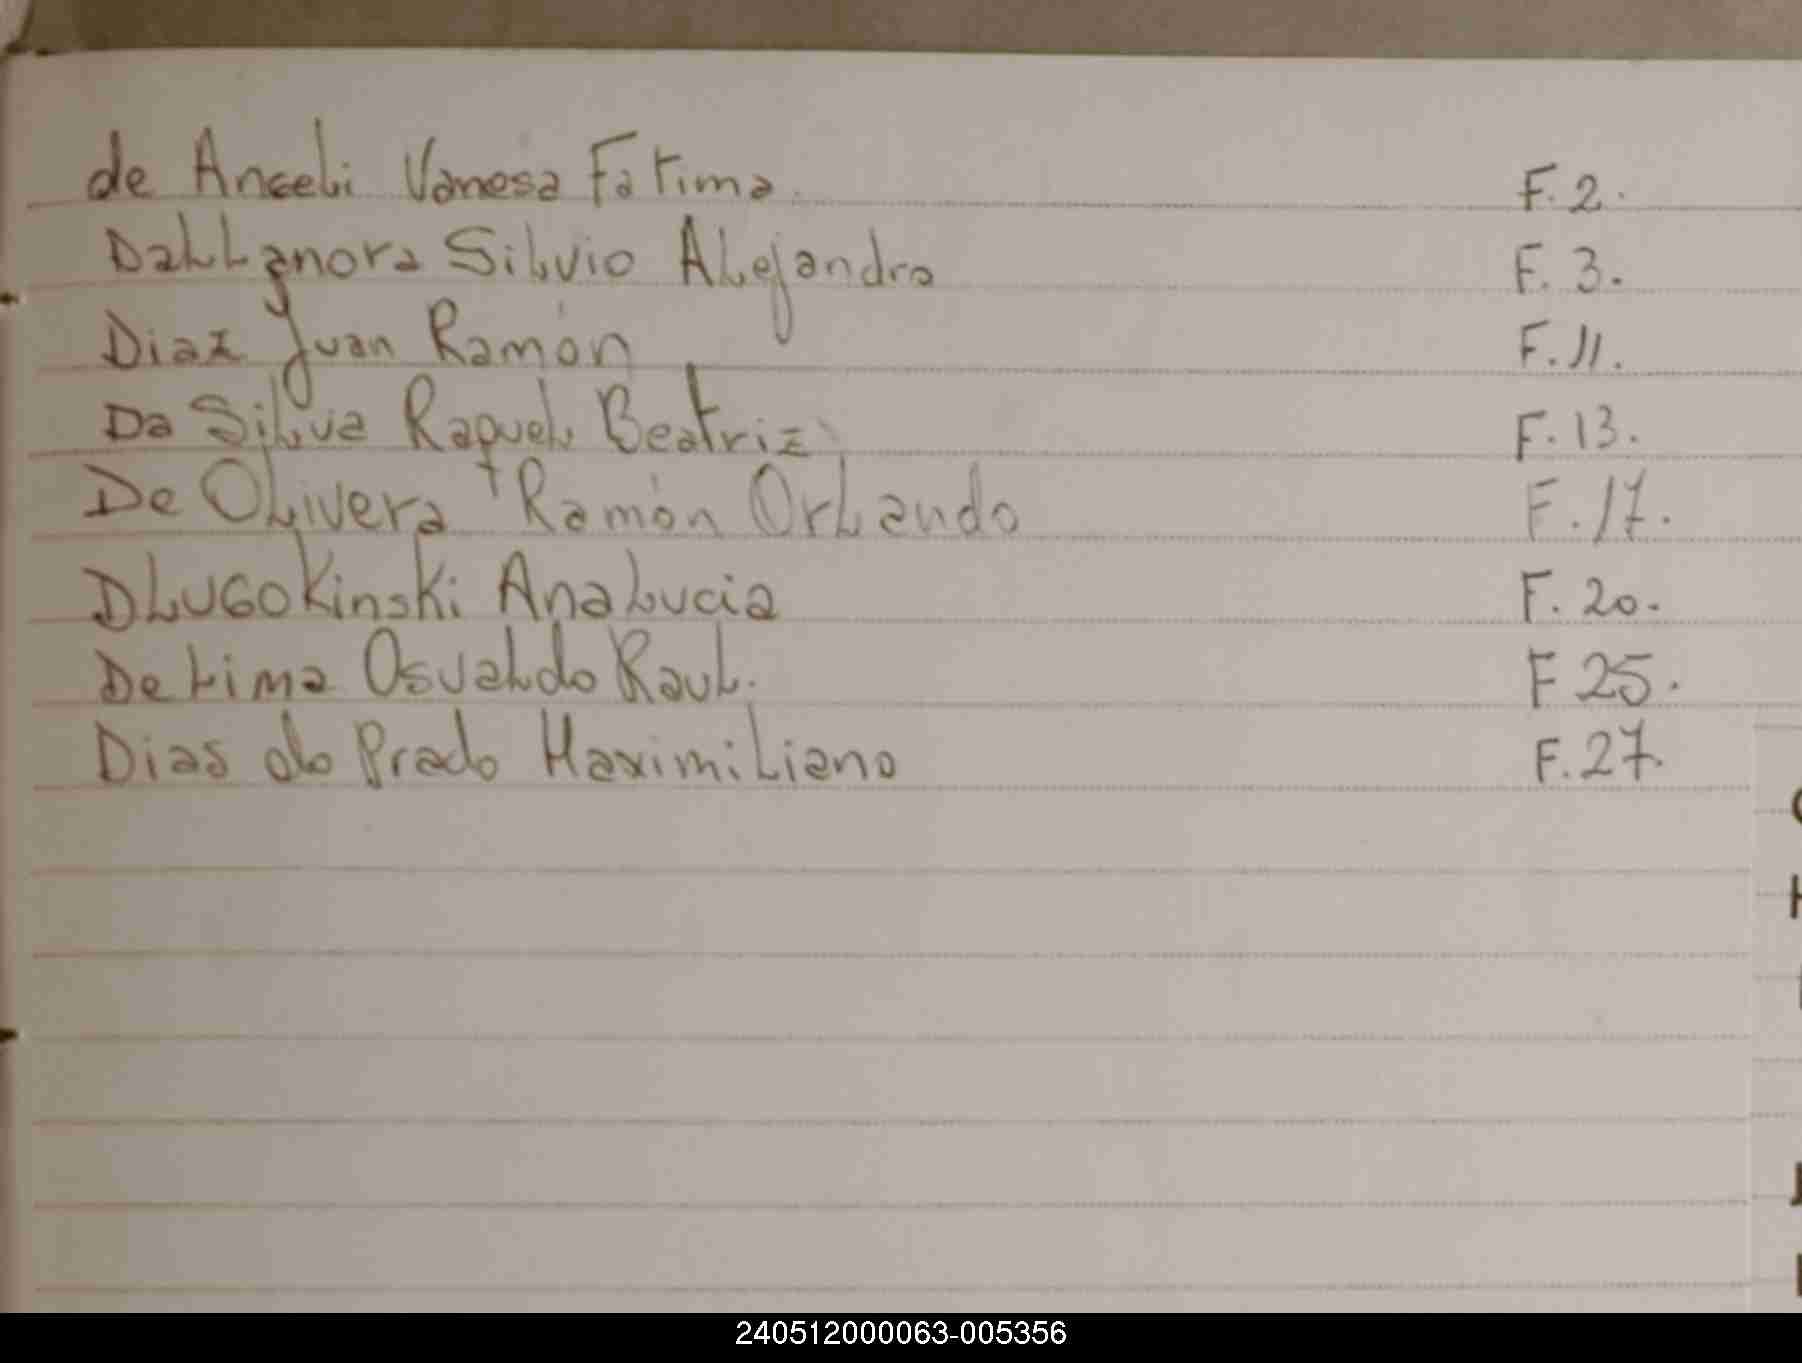 de Angeli Vanesa Fatima F. 2.
Dallanora Silvio Alejandro F. 3.
Diaz Juan Ramón F. 11.
Da Silva Raquel Beatriz F. 13.
De Olivera Ramón Orlando F. 17.
DLUGOKinski Ana Lucia F. 20.
De Lima Osvaldo Raul. F 25.
Dias do Prado Maximiliano F. 27.
240512000063-005356